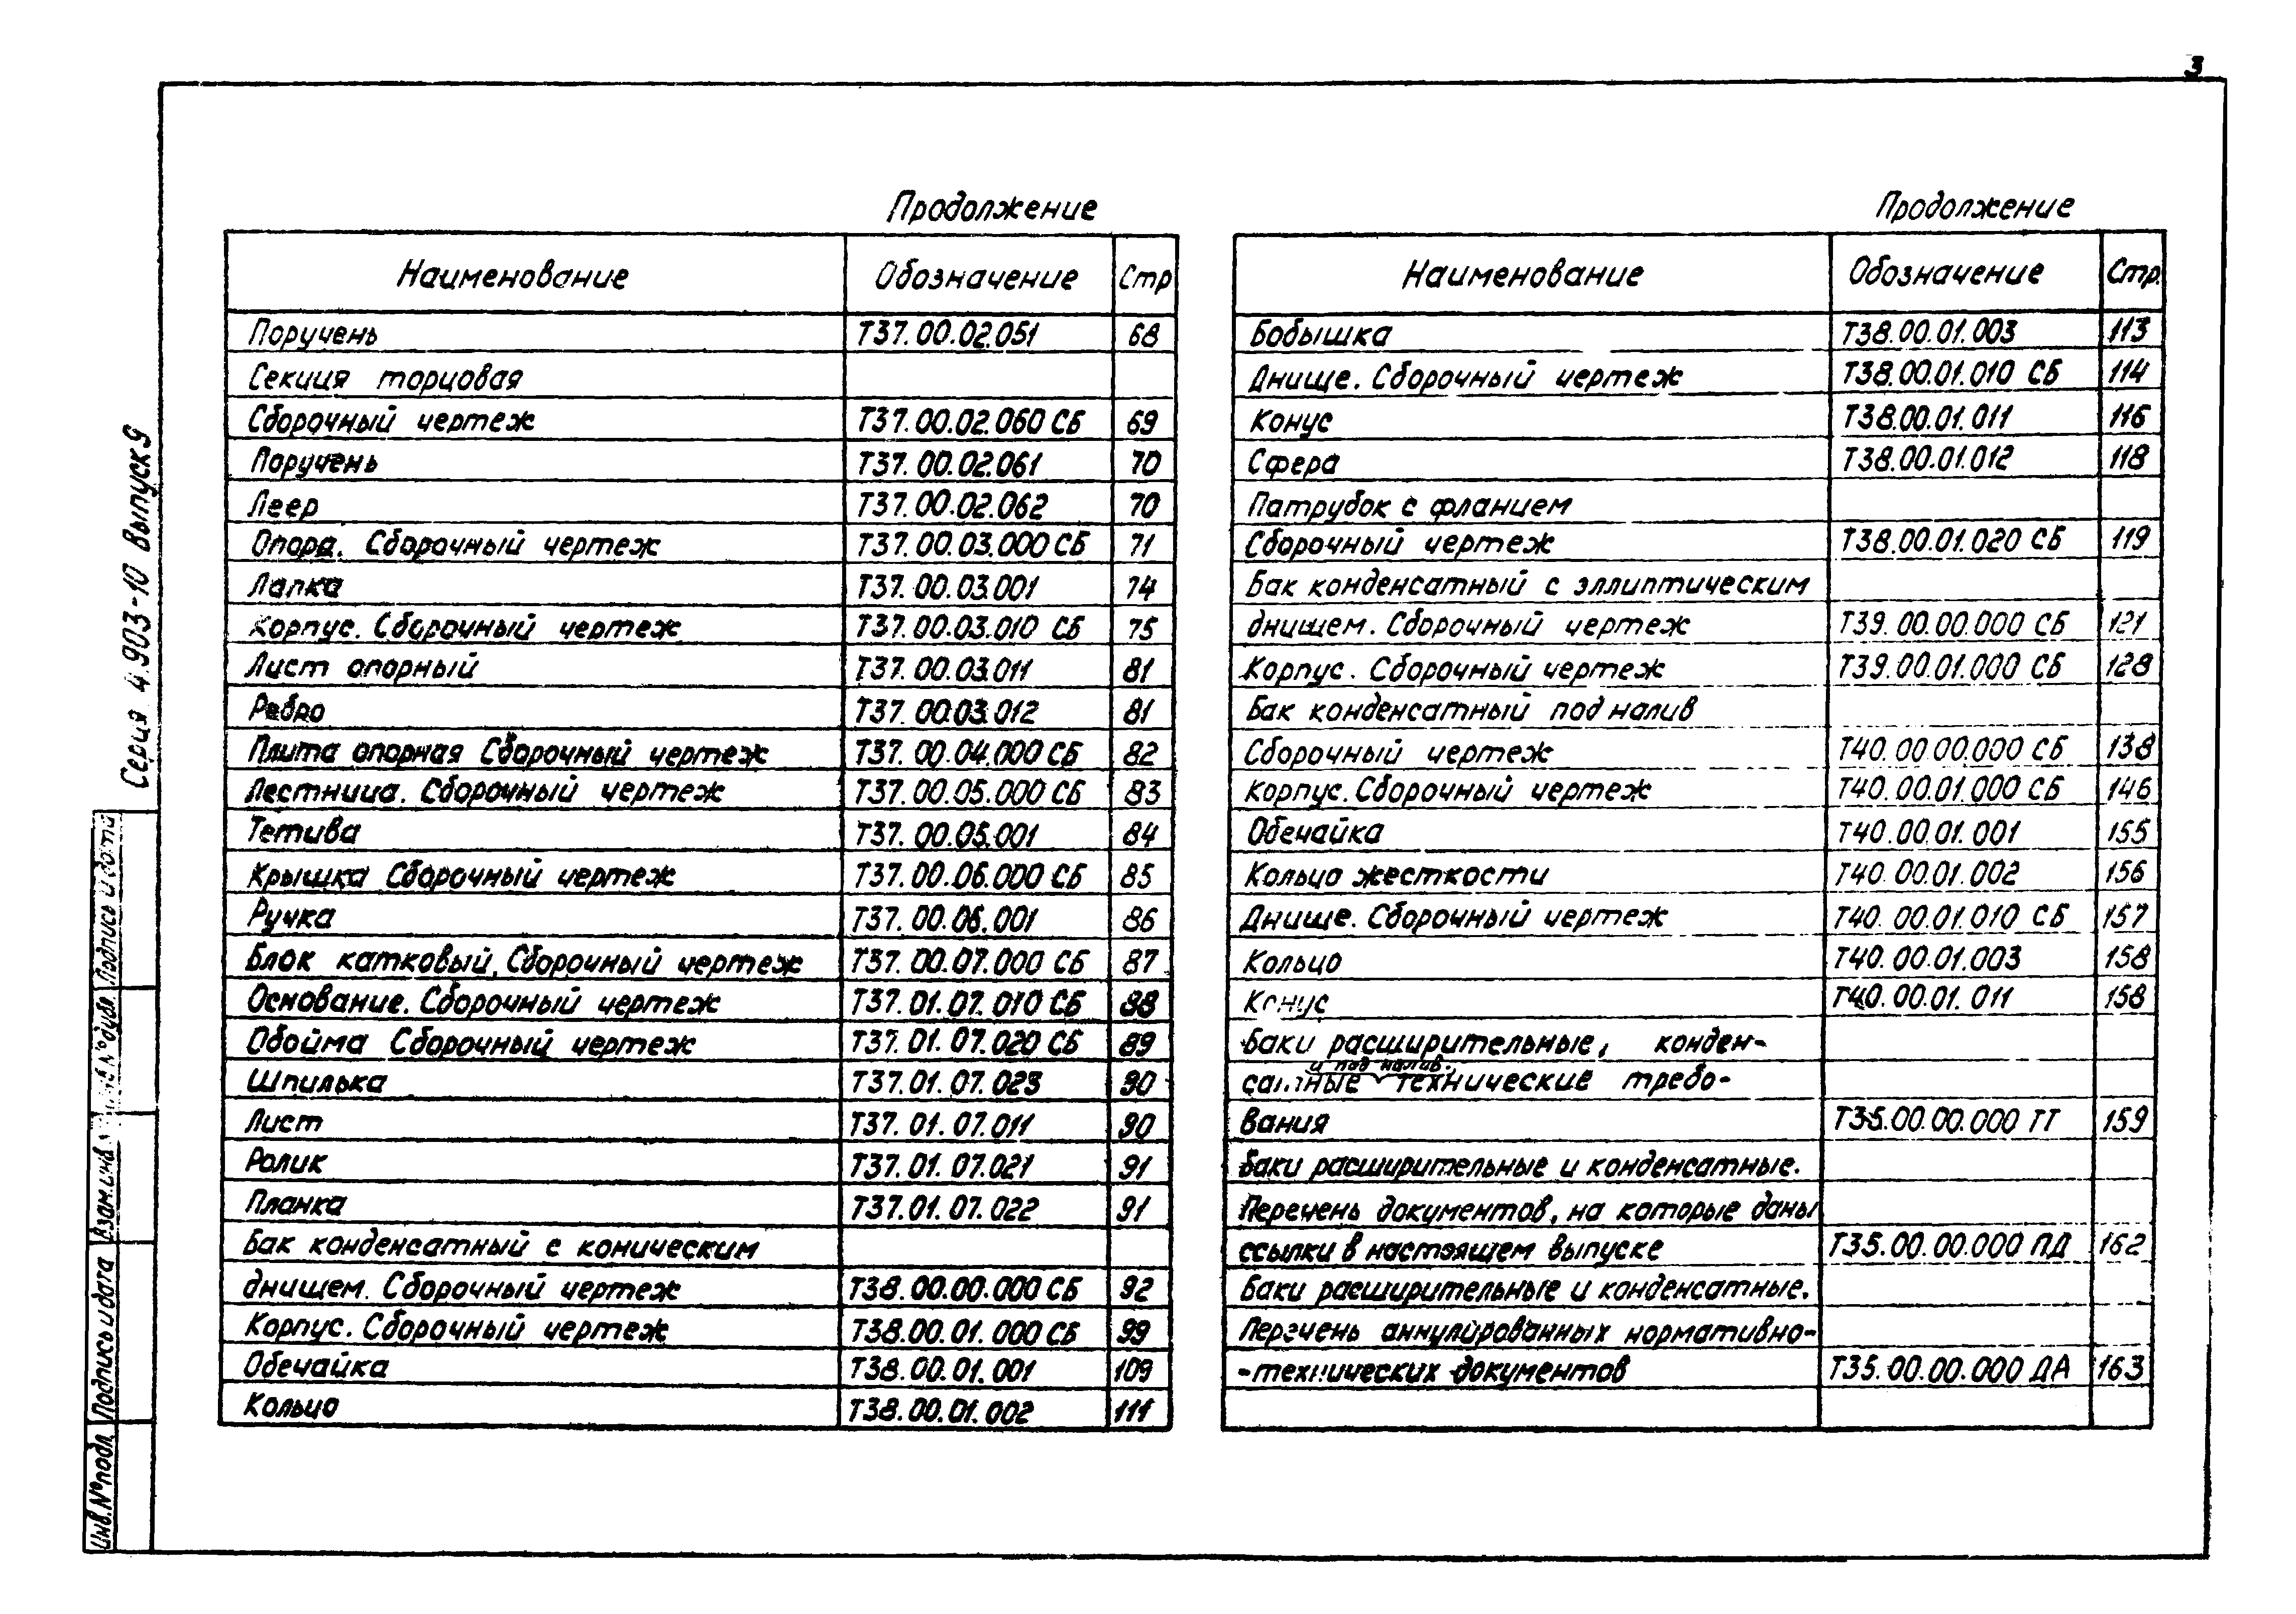 3
Серия 4.903-10 Выпуск 9
Продолжение
Наименование Обозначение Стр
Поручень Т37.00.02.051 68
Секция торцовая
Сборочный чертеж Т37.00.02.060 СБ 69
Поручень Т37.00.02.061 70
Леер Т37.00.02.062 70
Опора. Сборочный чертеж Т37.00.03.000 СБ 71
Лапка Т37.00.03.001 74
Корпус. Сборочный чертеж Т37.00.03.010 СБ 75
Лист опорный Т37.00.03.011 81
Ребро Т37.00.03.012 81
Плита опорная Сборочный чертеж Т37.00.04.000 СБ 82
Лестница. Сборочный чертеж Т37.00.05.000 СБ 83
Тетива Т37.00.05.001 84
Крышка Сборочный чертеж Т37.00.06.000 СБ 85
Ручка Т37.00.06.001 86
Блок катковый. Сборочный чертеж Т37.00.07.000 СБ 87
Основание. Сборочный чертеж Т37.01.07.010 СБ 88
Обойма Сборочный чертеж Т37.01.07.020 СБ 89
Шпилька Т37.01.07.023 90
Лист Т37.01.07.011 90
Ролик Т37.01.07.021 91
Планка Т37.01.07.022 91
Бак конденсатный с коническим
днищем. Сборочный чертеж Т38.00.00.000 СБ 92
Корпус. Сборочный чертеж Т38.00.01.000 СБ 99
Обечайка Т38.00.01.001 109
Кольцо Т38.00.01.002 111
Продолжение
Наименование Обозначение Стр.
Бобышка Т38.00.01.003 113
Днище. Сборочный чертеж Т38.00.01.010 СБ 114
Конус Т38.00.01.011 116
Сфера Т38.00.01.012 118
Патрубок с фланцем
Сборочный чертеж Т38.00.01.020 СБ 119
Бак конденсатный с эллиптическим
днищем. Сборочный чертеж Т39.00.00.000 СБ 121
Корпус. Сборочный чертеж Т39.00.01.000 СБ 128
Бак конденсатный под налив
Сборочный чертеж Т40.00.00.000 СБ 138
Корпус. Сборочный чертеж Т40.00.01.000 СБ 146
Обечайка Т40.00.01.001 155
Кольцо жесткости Т40.00.01.002 156
Днище. Сборочный чертеж Т40.00.01.010 СБ 157
Кольцо Т40.00.01.003 158
Конус Т40.00.01.011 158
Баки расширительные, конден-
и под налив.
сатные технические требо-
вания Т35.00.00.000 ТТ 159
Баки расширительные и конденсатные.
Перечень документов, на которые даны
ссылки в настоящем выпуске Т35.00.00.000 ПД 162
Баки расширительные и конденсатные.
Перечень аннулированных нормативно-
-технических документов Т35.00.00.000 ДА 163
Инв.№подл. Подпись и дата Взам.инв. Инв.№дубл. Подпись и дата